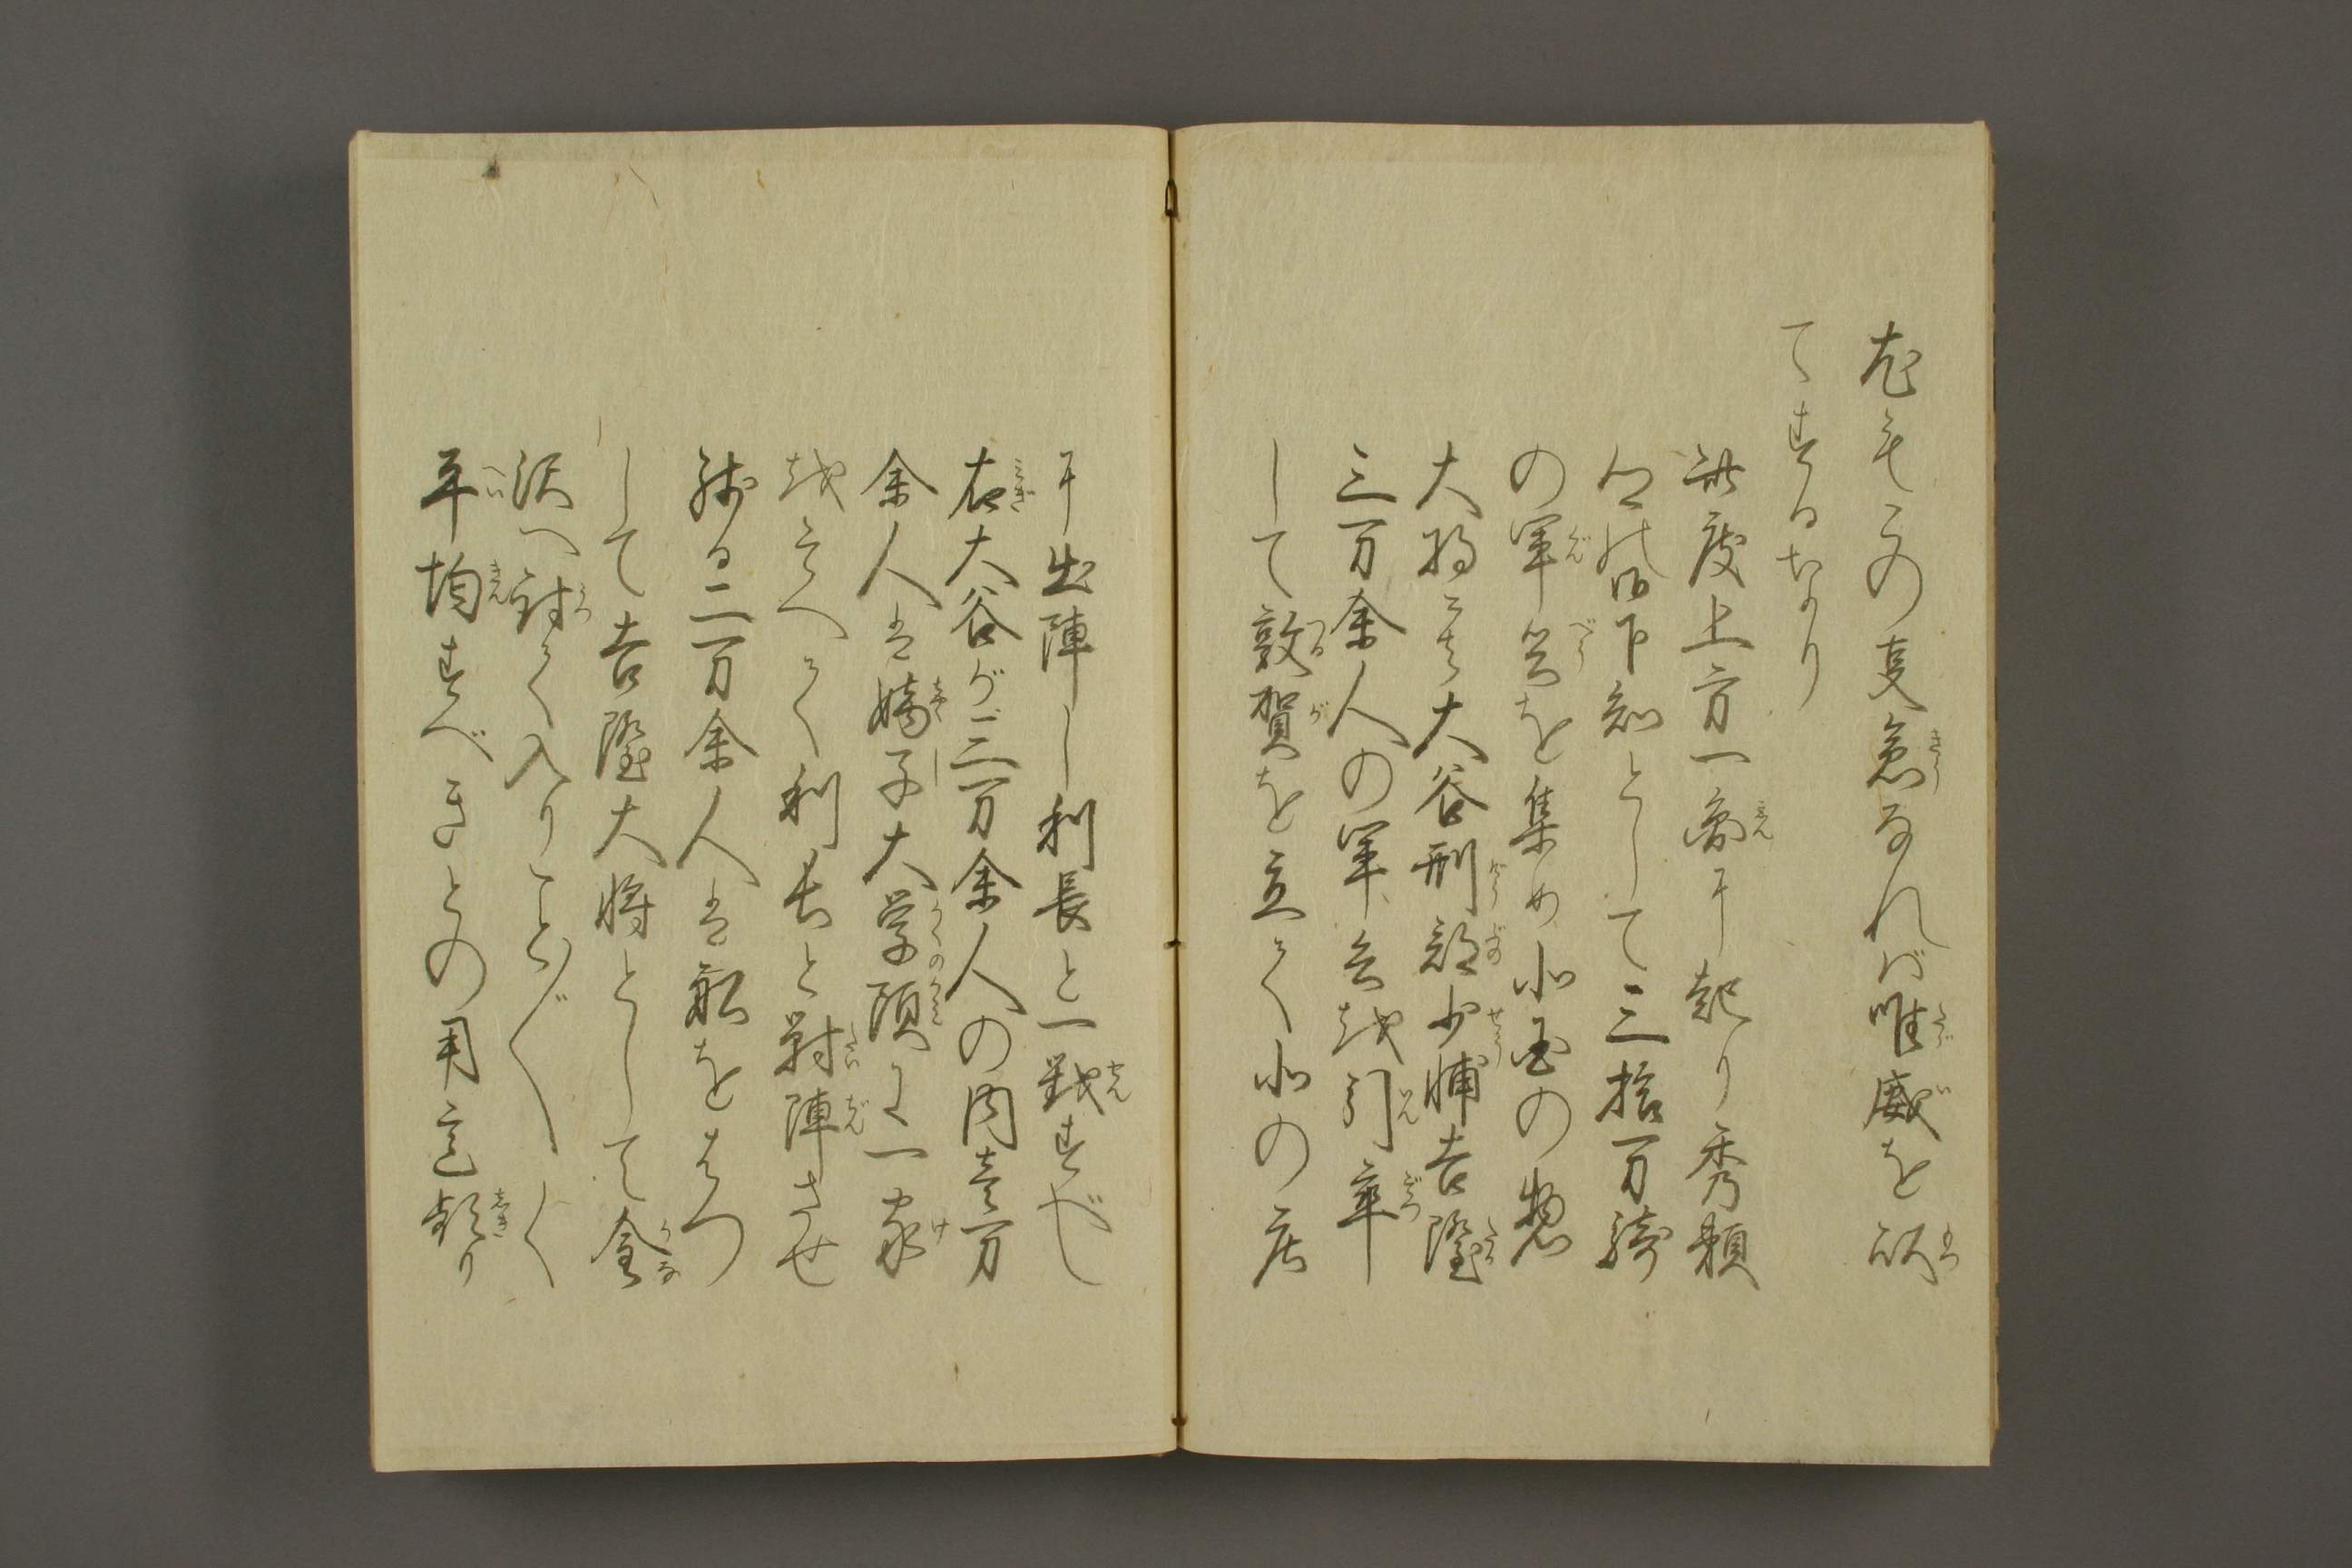 尤もその変急なれば唯威を以
てするなり
此度上方一圓に起り秀頼
公の御下知として三拾万騎
の軍兵を集め北国の惣
大将には大谷刑部少輔吉隆
三万余人の軍兵を引率
して敦賀を立て北の庄
に出陣し利長と一戦すべし
右大谷が三万余人の内壱万
余人は嫡子大学頭に一家
をそへて利長と対陣させ
残る二万余人は船をもつ
して吉隆大将として金
沢へ討て入りこと〴〵く
平均すべきとの用意頻り